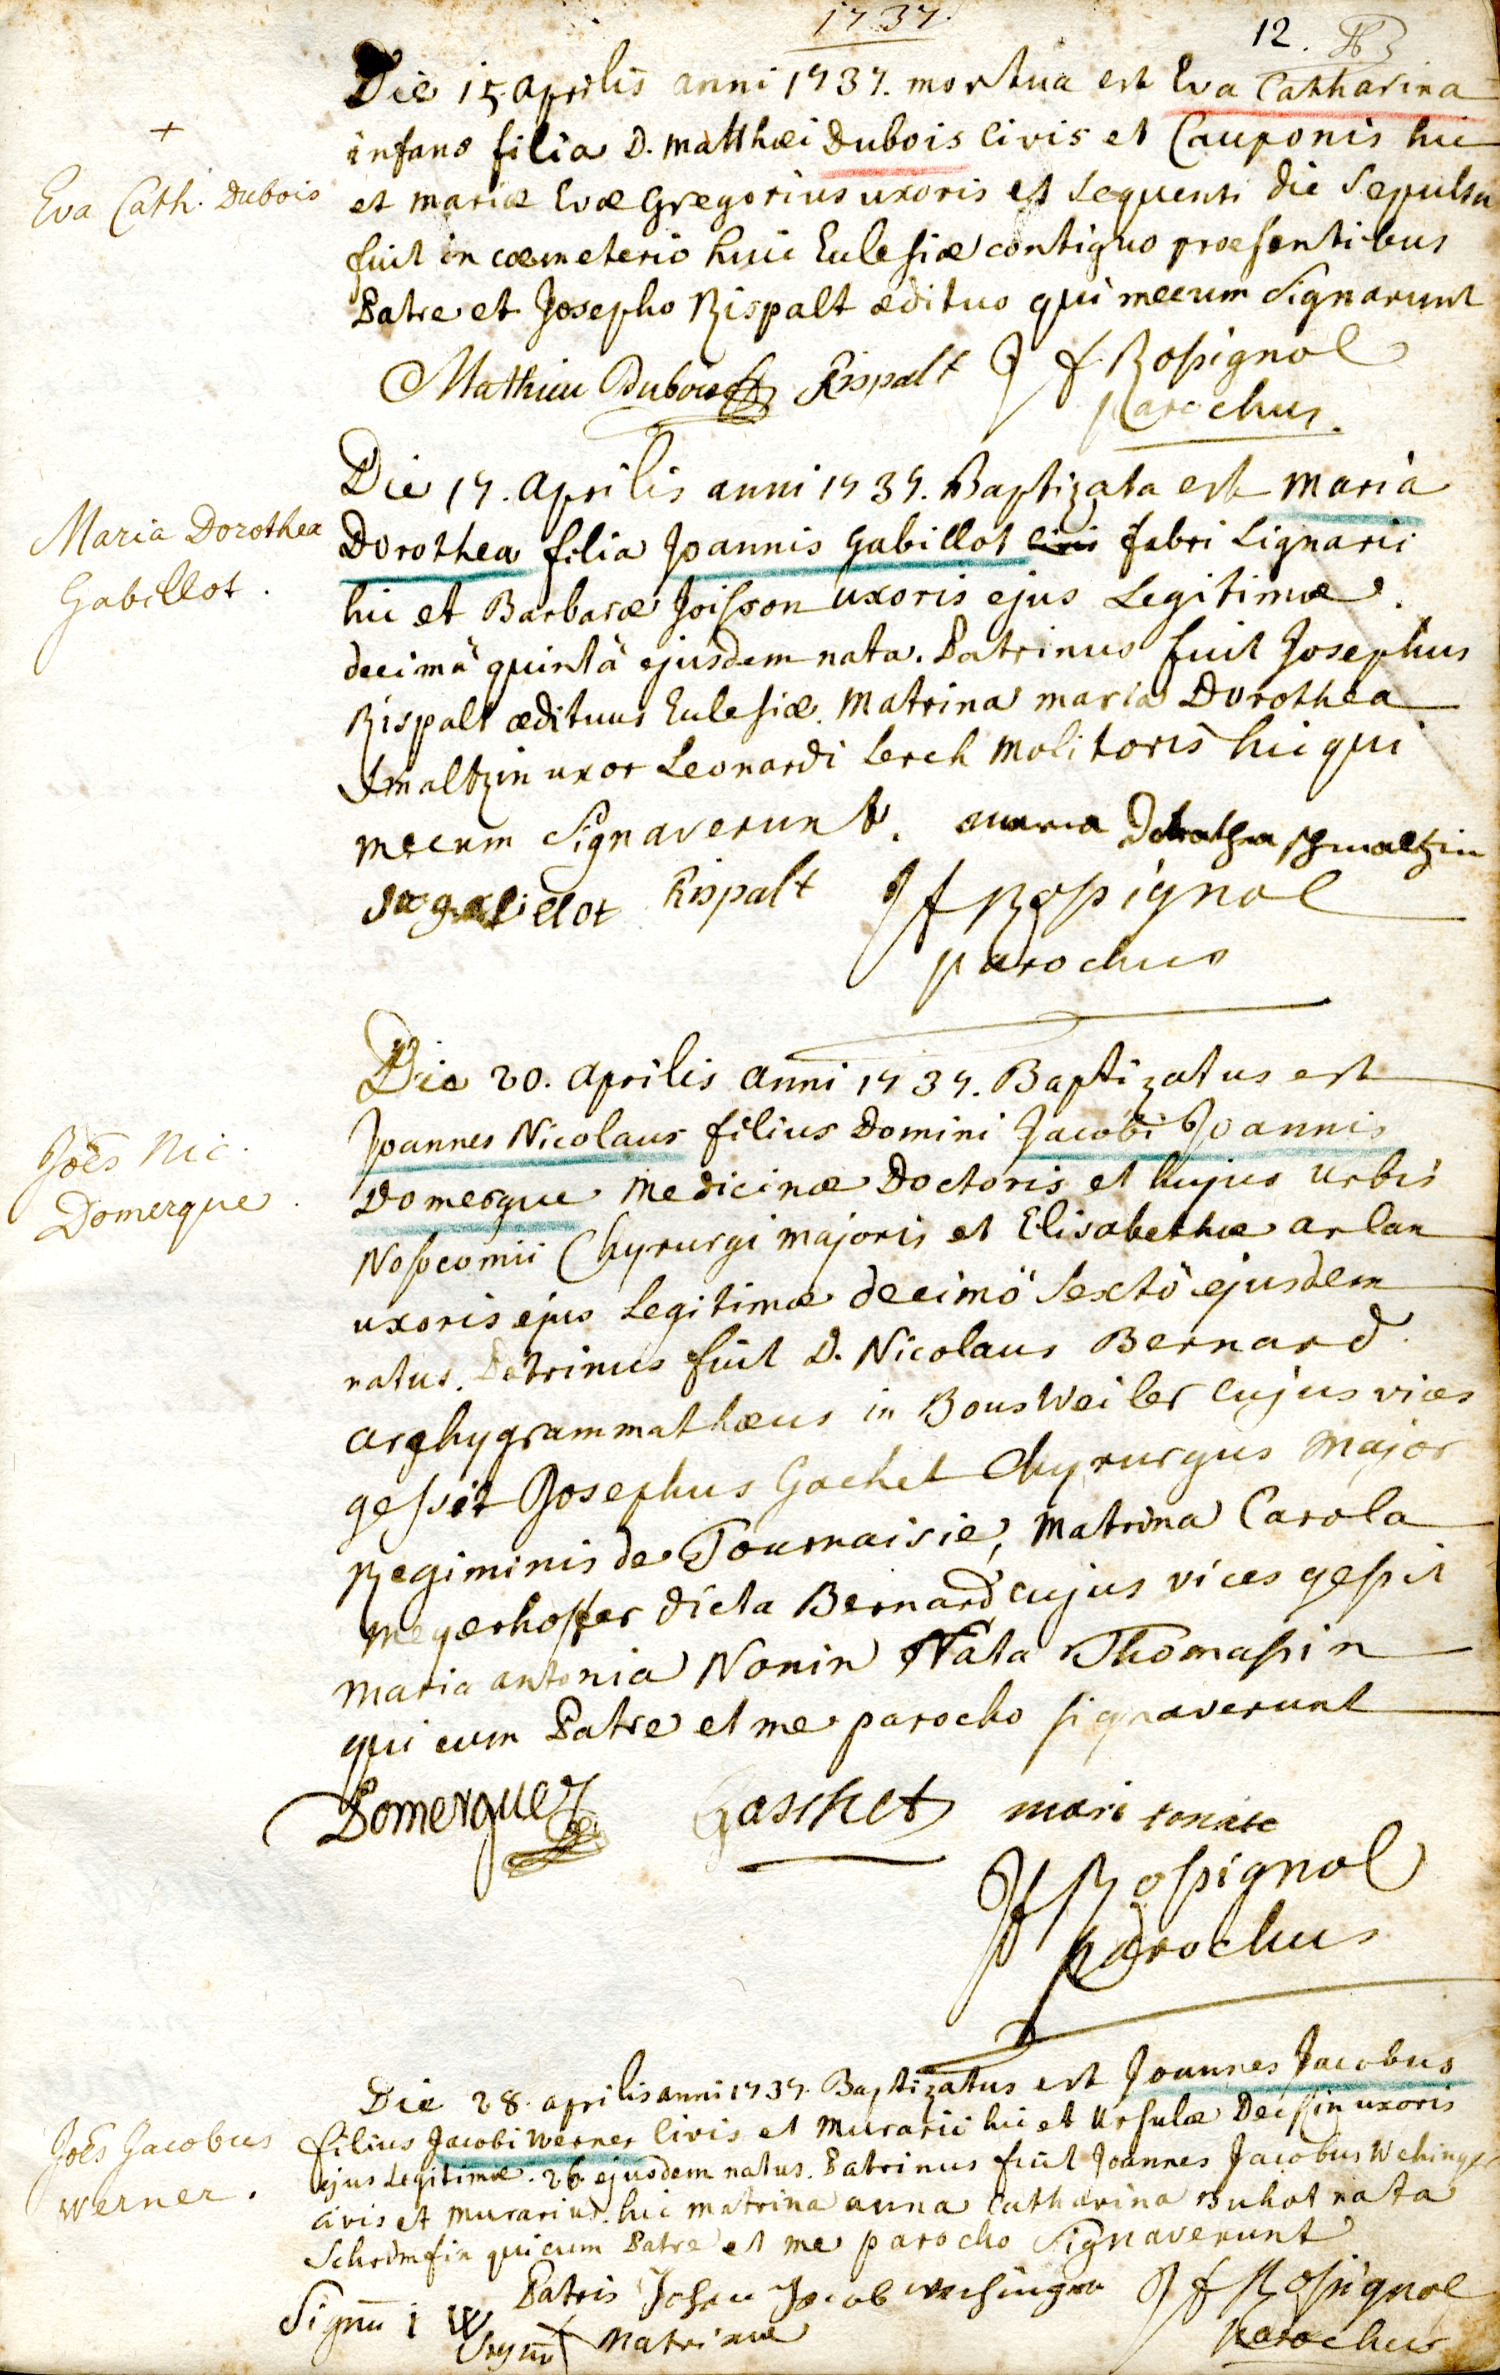 1737.
12.
Die 15 aprilis anni 1737. mortua est Eva Catharina
+
infans filia D. Matthæi Dubois Civis et Cauponis hic
Eva Cath. Dubois
et mariæ Evæ Gregorius uxoris et sequenti die Sepulta
fuit in cœmeterio huic Eclesiæ contiguo præsentibus
Patre et Josepho Rispalt ædituo qui mecum signarunt
Mathieu Dubois Rispalt J f Rossignol
Parochus.
Die 17. aprilis anni 1737. Baptizata est Maria
Maria Dorothea
Gabillot.
Dorothea filia Joannis Gabillot civis fabri Lignarii
hic et Barbaræ Joisson uxoris ejus Legitimæ.
decimâ quintâ ejusdem nata. Patrinus fuit Josephus
Rispalt ædituus Eclesiæ. Matrina maria Dorothea
Smaltzin uxor Leonardi Lerch Molitoris hic qui
mecum signaverunt. maria Dorothea schmaltzin
gabillot Rispalt J f Rossignol
parochus
Die 20. aprilis anni 1737. Baptizatus est
Joēs Nic.
Domergue.
Joannes Nicolaus filius Domini Jacobi Joannis
Domergue Medicinæ Doctoris et hujus urbis
Nosocomii Chyrurgi majoris et Elisabethæ arlan
uxoris ejus Legitimæ decimô sextô ejusdem
natus. Patrinus fuit D. Nicolaus Bernard
archygrammathæus in Bousweiler cujus vices
gessit Josephus Gachet Chyrurgus Major
Regiminis de Tournaisie, Matrina Carola
Meyerhoffer dicta Bernard cujus vices gessit
Maria antonia Nonin Nata Thomassin
qui cum Patre et me parocho signaverunt
Domergue Gaschet mari
J f Rossignol
parochus
Die 28. aprilis anni 1737. Baptizatus est Joannes Jacobus
Joēs Jacobus
Werner.
filius Jacobi Werner Civis et Murarii hic et Ursulæ Deissin uxoris
ejus Legitimæ. 26 ejusdem natus. Patrinus fuit Joannes Jacobus Wehinger
civis et murarius hic matrina anna Catharina Buhot nata
Schrimfin qui cum Patre et me parocho signaverunt
Signū i W Patris Johan Jacob J f Rossignol
Signū X Matrinæ parochus